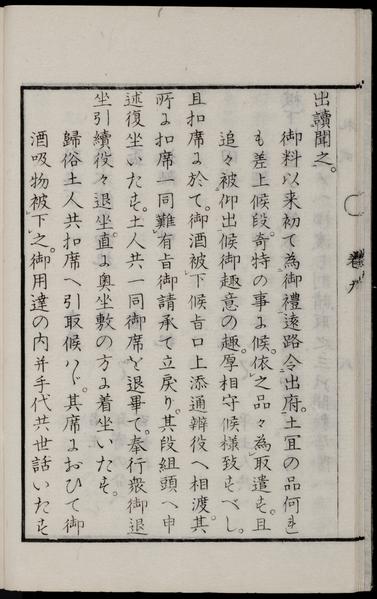 出讀聞之。
御料以来初て為御禮遠路令出府。土冝の品何き
も差上候段。奇特の事よ候。依之品々為取遣も。且
追々被仰出候御趣意の趣。厚相守候様致もべし。
且扣席よ於て。御酒被下候旨口上添通辯役へ相渡。其
所よ扣席一同難有旨御請承て立戻り。其段組頭へ申
述復坐いたも。土人共一同御席を退畢て。奉行衆御退
坐引續役々退坐。直よ奥坐敷の方よ着坐いたも。
歸俗土人共扣席へ引取候ハゞ。其席よおひて御
酒吸物被下之。御用達の内并手代共世話いたも